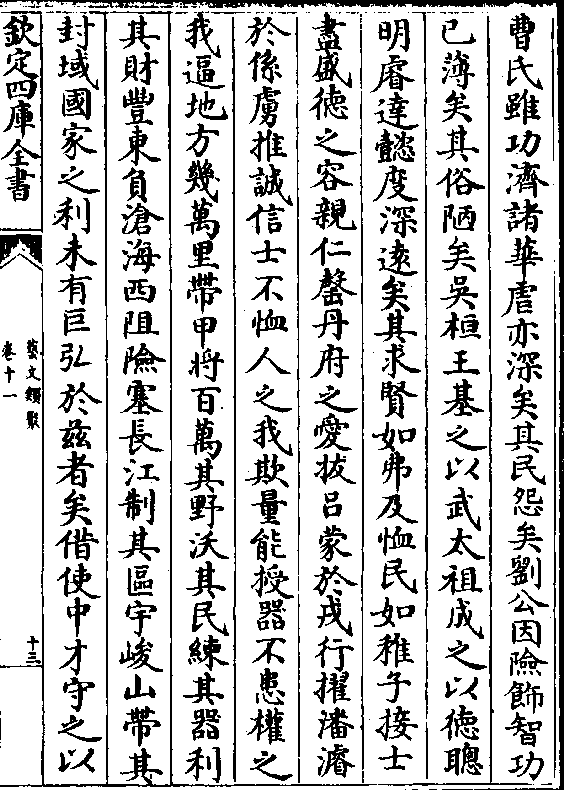 曹氏雖功濟諸華虐亦深矣其民怨矣劉公因險飾智功
已薄矣其俗陋矣吳桓王基之以武太祖成之以徳聰
明睿達懿度深逺矣其求賢如弗及恤民如稚子接士
盡盛徳之容親仁罄丹府之愛拔吕蒙於戎行擢潘濬
於係虜推誠信士不恤人之我欺量能授器不患權之
我逼地方幾萬里帶甲将百萬其野沃其民練其器利
其財豐東負滄海西阻險塞長江制其區宇峻山帶其
封域國家之利未有巨弘於兹者矣借使中才守之以
欽定四庫全書
藝文類聚
卷十一
十三